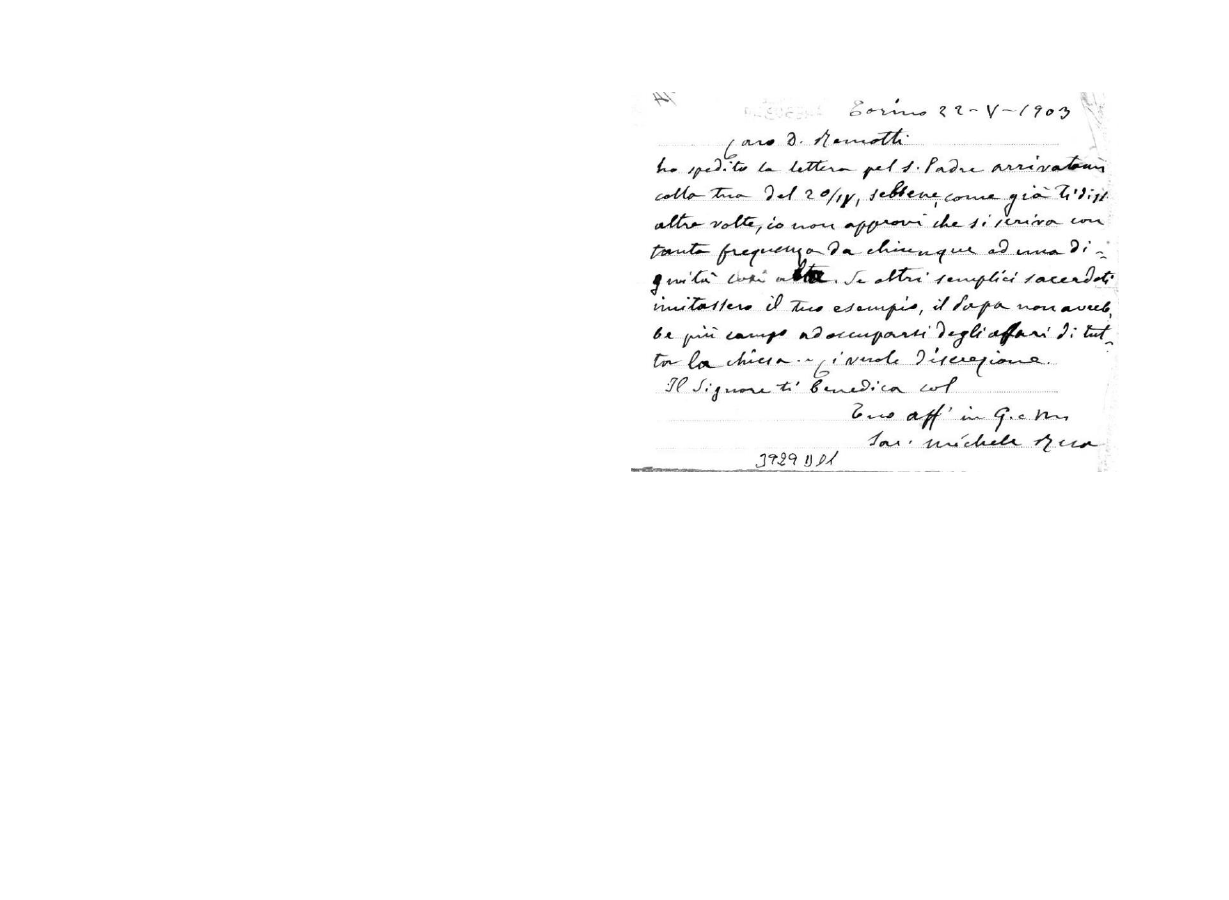 Torino 22-V-1903
Caro D. Remotti
ho spedito la lettera pel S. Padre arrivatami
colla tua del 20/IV, sebbene, come già ti dissi
altre volte, io non approvi che si scriva con
tanta frequenza da chiunque ad una di-
gnità così alta. Se altri semplici sacerdoti
imitassero il tuo esempio, il Papa non avreb
be più campo ad occuparsi degli affari di tut-
ta la chiesa. Ci vuole discrezione.
Il Signore ti benedica col
Tuo aff in G. e M
Sac. Michele Rua
3929